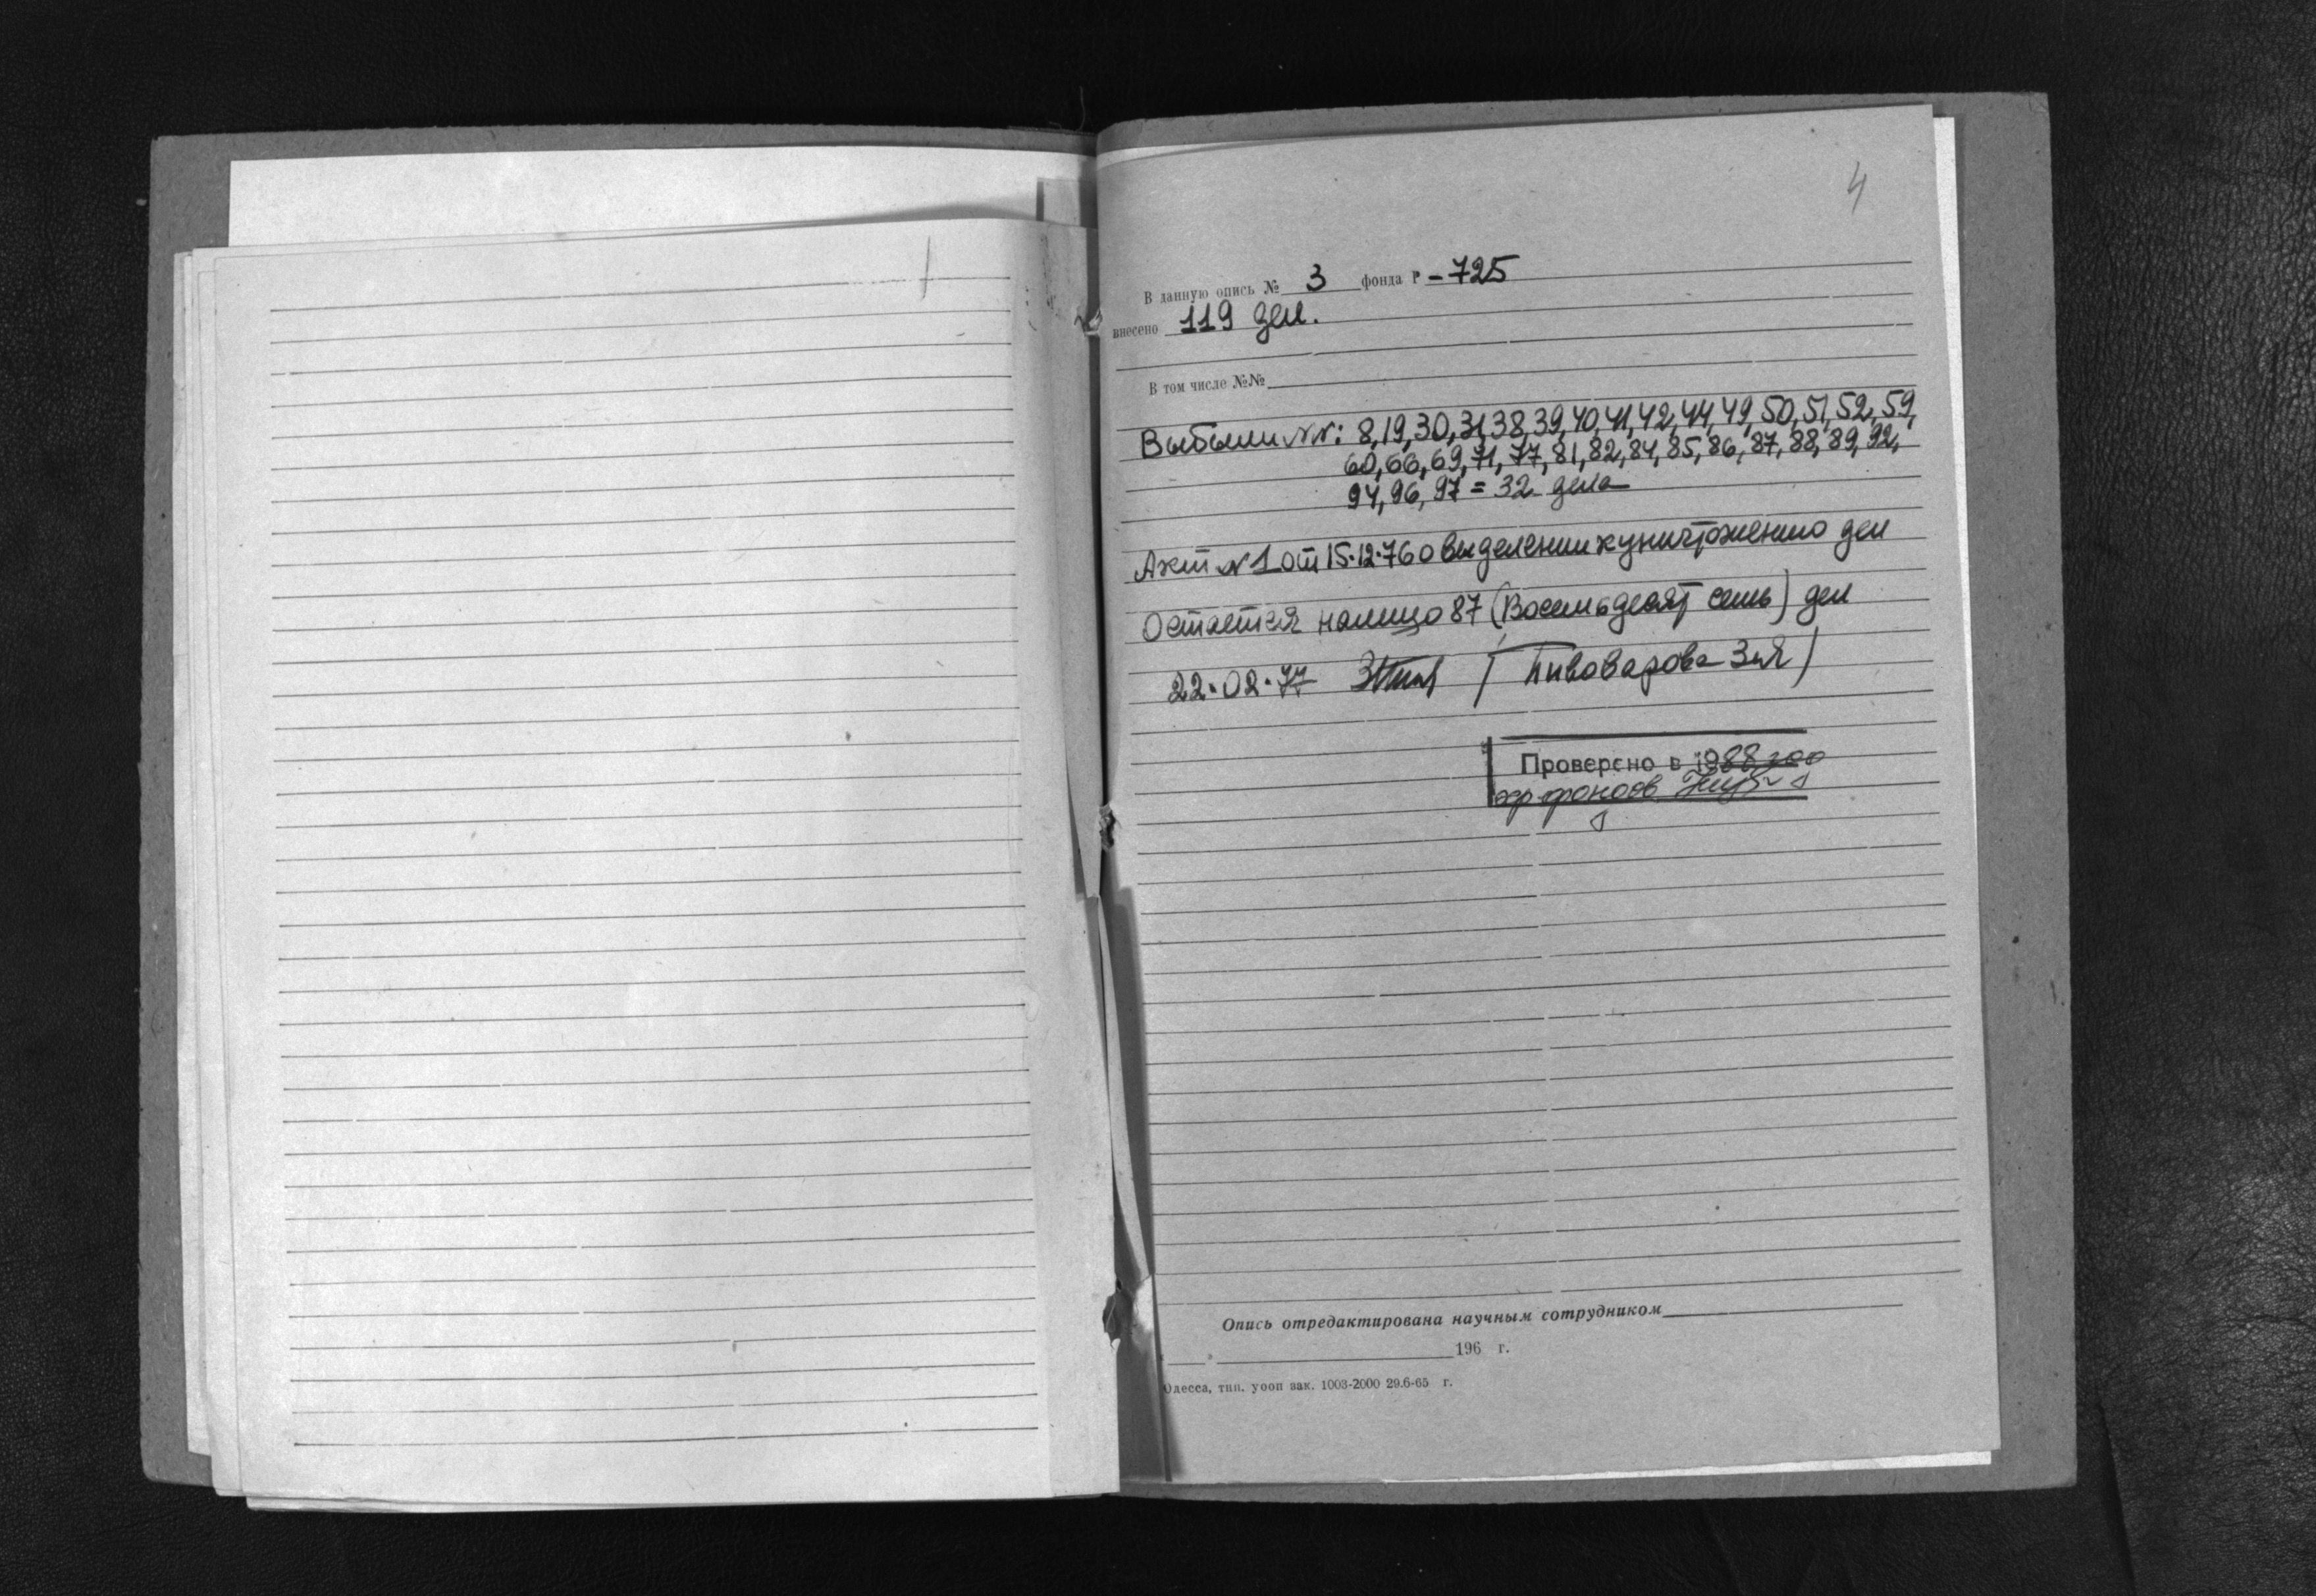 4
В данную опись № 3 фонда Р -725
внесено 119 дел.
В том числе №№
Выбыли №№: 8,19,30,31,38,39,40,41,42,44,49,50,51,52,59,
60,66,69,71,77,81,82,84,85,86,87,88,89,92,
94,96,97 = 32 дела
Акт №1 от 15.12.76 о выделении к уничтожению дел
Остается налицо 87 (Восемьдесят семь) дел
22.02.77 (Пивоварова З.Я)
Проверено в 1988 году
хр. фондов
Опись отредактирована научным сотрудником
196 г.
Одесса, тип. уооп зак. 1003-2000 29.6-65 г.